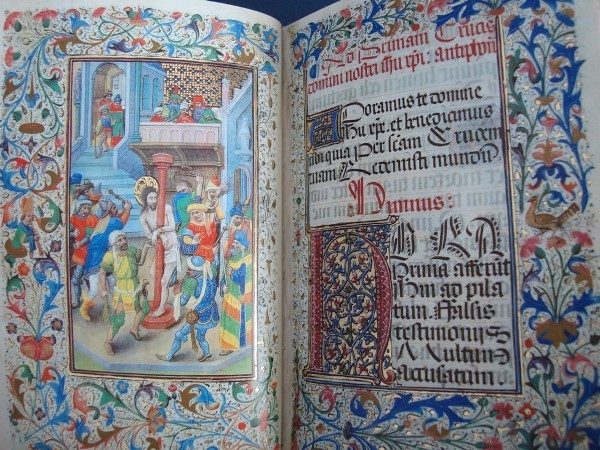 Ad Primam Crucis
domini nostri ihu xpi: antiphon
Adoramus te domine
ihu xpe. et benedicamus
tibi quia per scam Crucem
tuam Redemisti mundum
Hymnus:
HORA
Prima afferut
Ihm ad pila
tum. Falsis
testimoniis
Multum
accusatum.